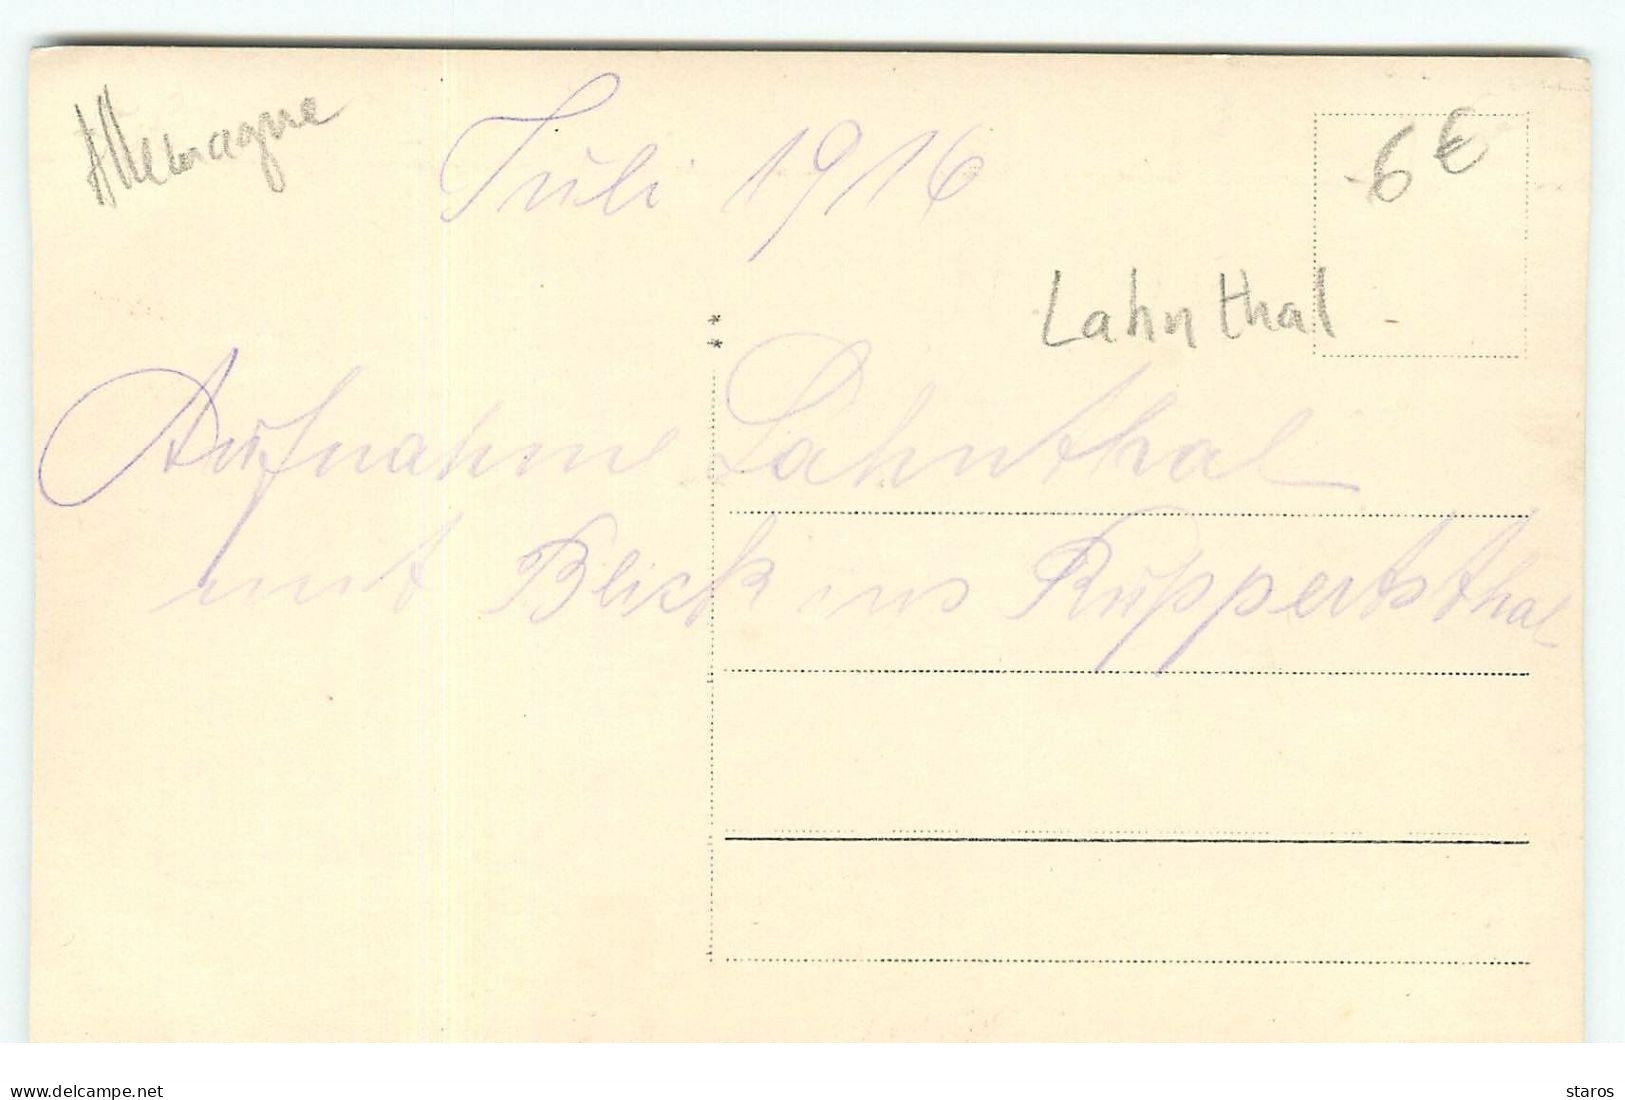 Allemagne
Juli 1916
6 €
Lahnthal
Aufnahme Lahnthal
mit Blick ins Ruppertsthal
delcampe.net
staros